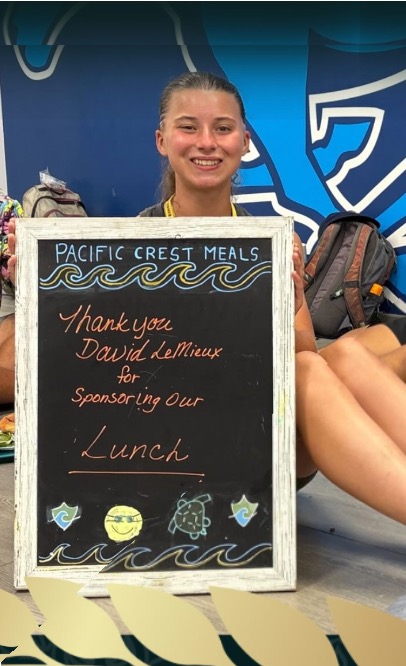 PACIFIC CREST MEALS
Thank you
David LeMieux
for
Sponsoring Our
Lunch